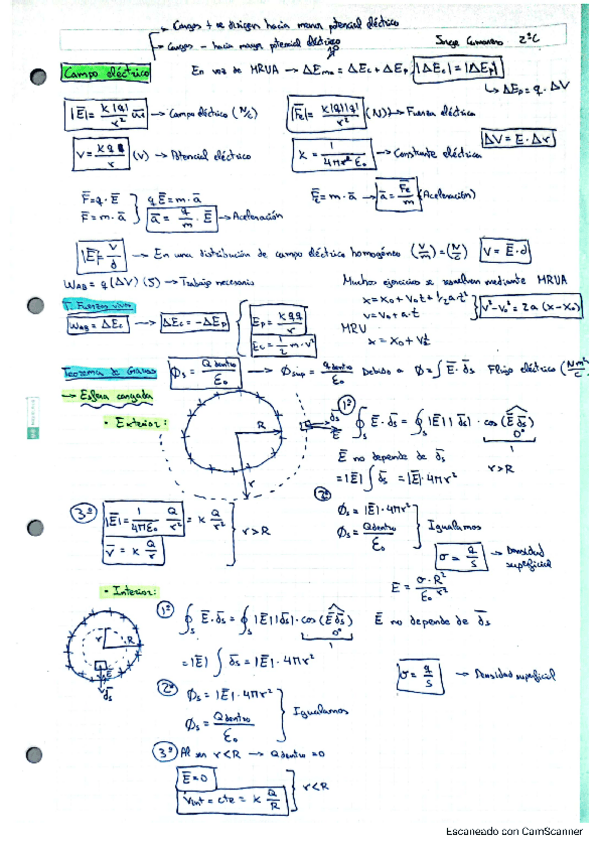 Cargas + se dirigen hacia menor potencial eléctrico
Cargas - hacia mayor potencial eléctrico
2ºC
Campo eléctrico
En vez de MRUA → ΔEma = ΔEc + ΔEp |ΔEc| = |ΔEp|
↳ ΔEp = q · ΔV
|E| = K|q|/r² → Campo eléctrico (N/C) |Fe| = K|q||q'|/r² (N) → Fuerza eléctrica
ΔV = E · Δr
V = Kq/r (V) → Potencial eléctrico K = 1/4πε₀ → Constante eléctrica
F = q · E } qE = m · a
F = m · a } a = q/m · E → Aceleración
Fe = m · a → a = Fe/m (Aceleración)
|E| = V/d → En una distribución de campo eléctrico homogéneo (V/m) = (N/C) V = E · d
WAB = q(ΔV) (J) → Trabajo necesario
Muchos ejercicios se resuelven mediante MRUA
T. Fuerzas vivas
x = x₀ + v₀t + 1/2 a · t²
v = v₀ + a · t
v² - v₀² = 2a (x - x₀)
WAB = ΔEc → ΔEc = -ΔEp { Ep = Kqq/r
Ec = 1/2 m · v²
MRU
x = x₀ + vt
Teorema de Gauss
Φs = Qdentro/ε₀ → Φsup = qdentro/ε₀ Debido a Φ = ∫ E · ds Flujo eléctrico (Nm²/C
→ Esfera cargada
• Exterior:
R
r
ds
E
1º ∮s E · ds = ∮s |E||ds| · cos (E ds)
0º
1
E no depende de ds
r > R
= |E| ∫ ds = |E| · 4πr²
2º Φs = |E| · 4πr²
Φs = Qdentro/ε₀
Igualamos
3º |E| = 1/4πε₀ Q/r² = K Q/r²
V = K Q/r
r > R
σ = Q/S → Densidad superficial
E = σ · R²/ε₀ r²
• Interior:
r
R
E
ds
1º ∮s E · ds = ∮s |E||ds| · cos (E ds) E no depende de ds
0º
1
= |E| ∫ ds = |E| · 4πr²
σ = q/S → Densidad superficial
2º Φs = |E| · 4πr²
Φs = Qdentro/ε₀
Igualamos
3º Al ser r < R → Qdentro = 0
E = 0
Vint = cte = K Q/R
r < R
Escaneado con CamScanner